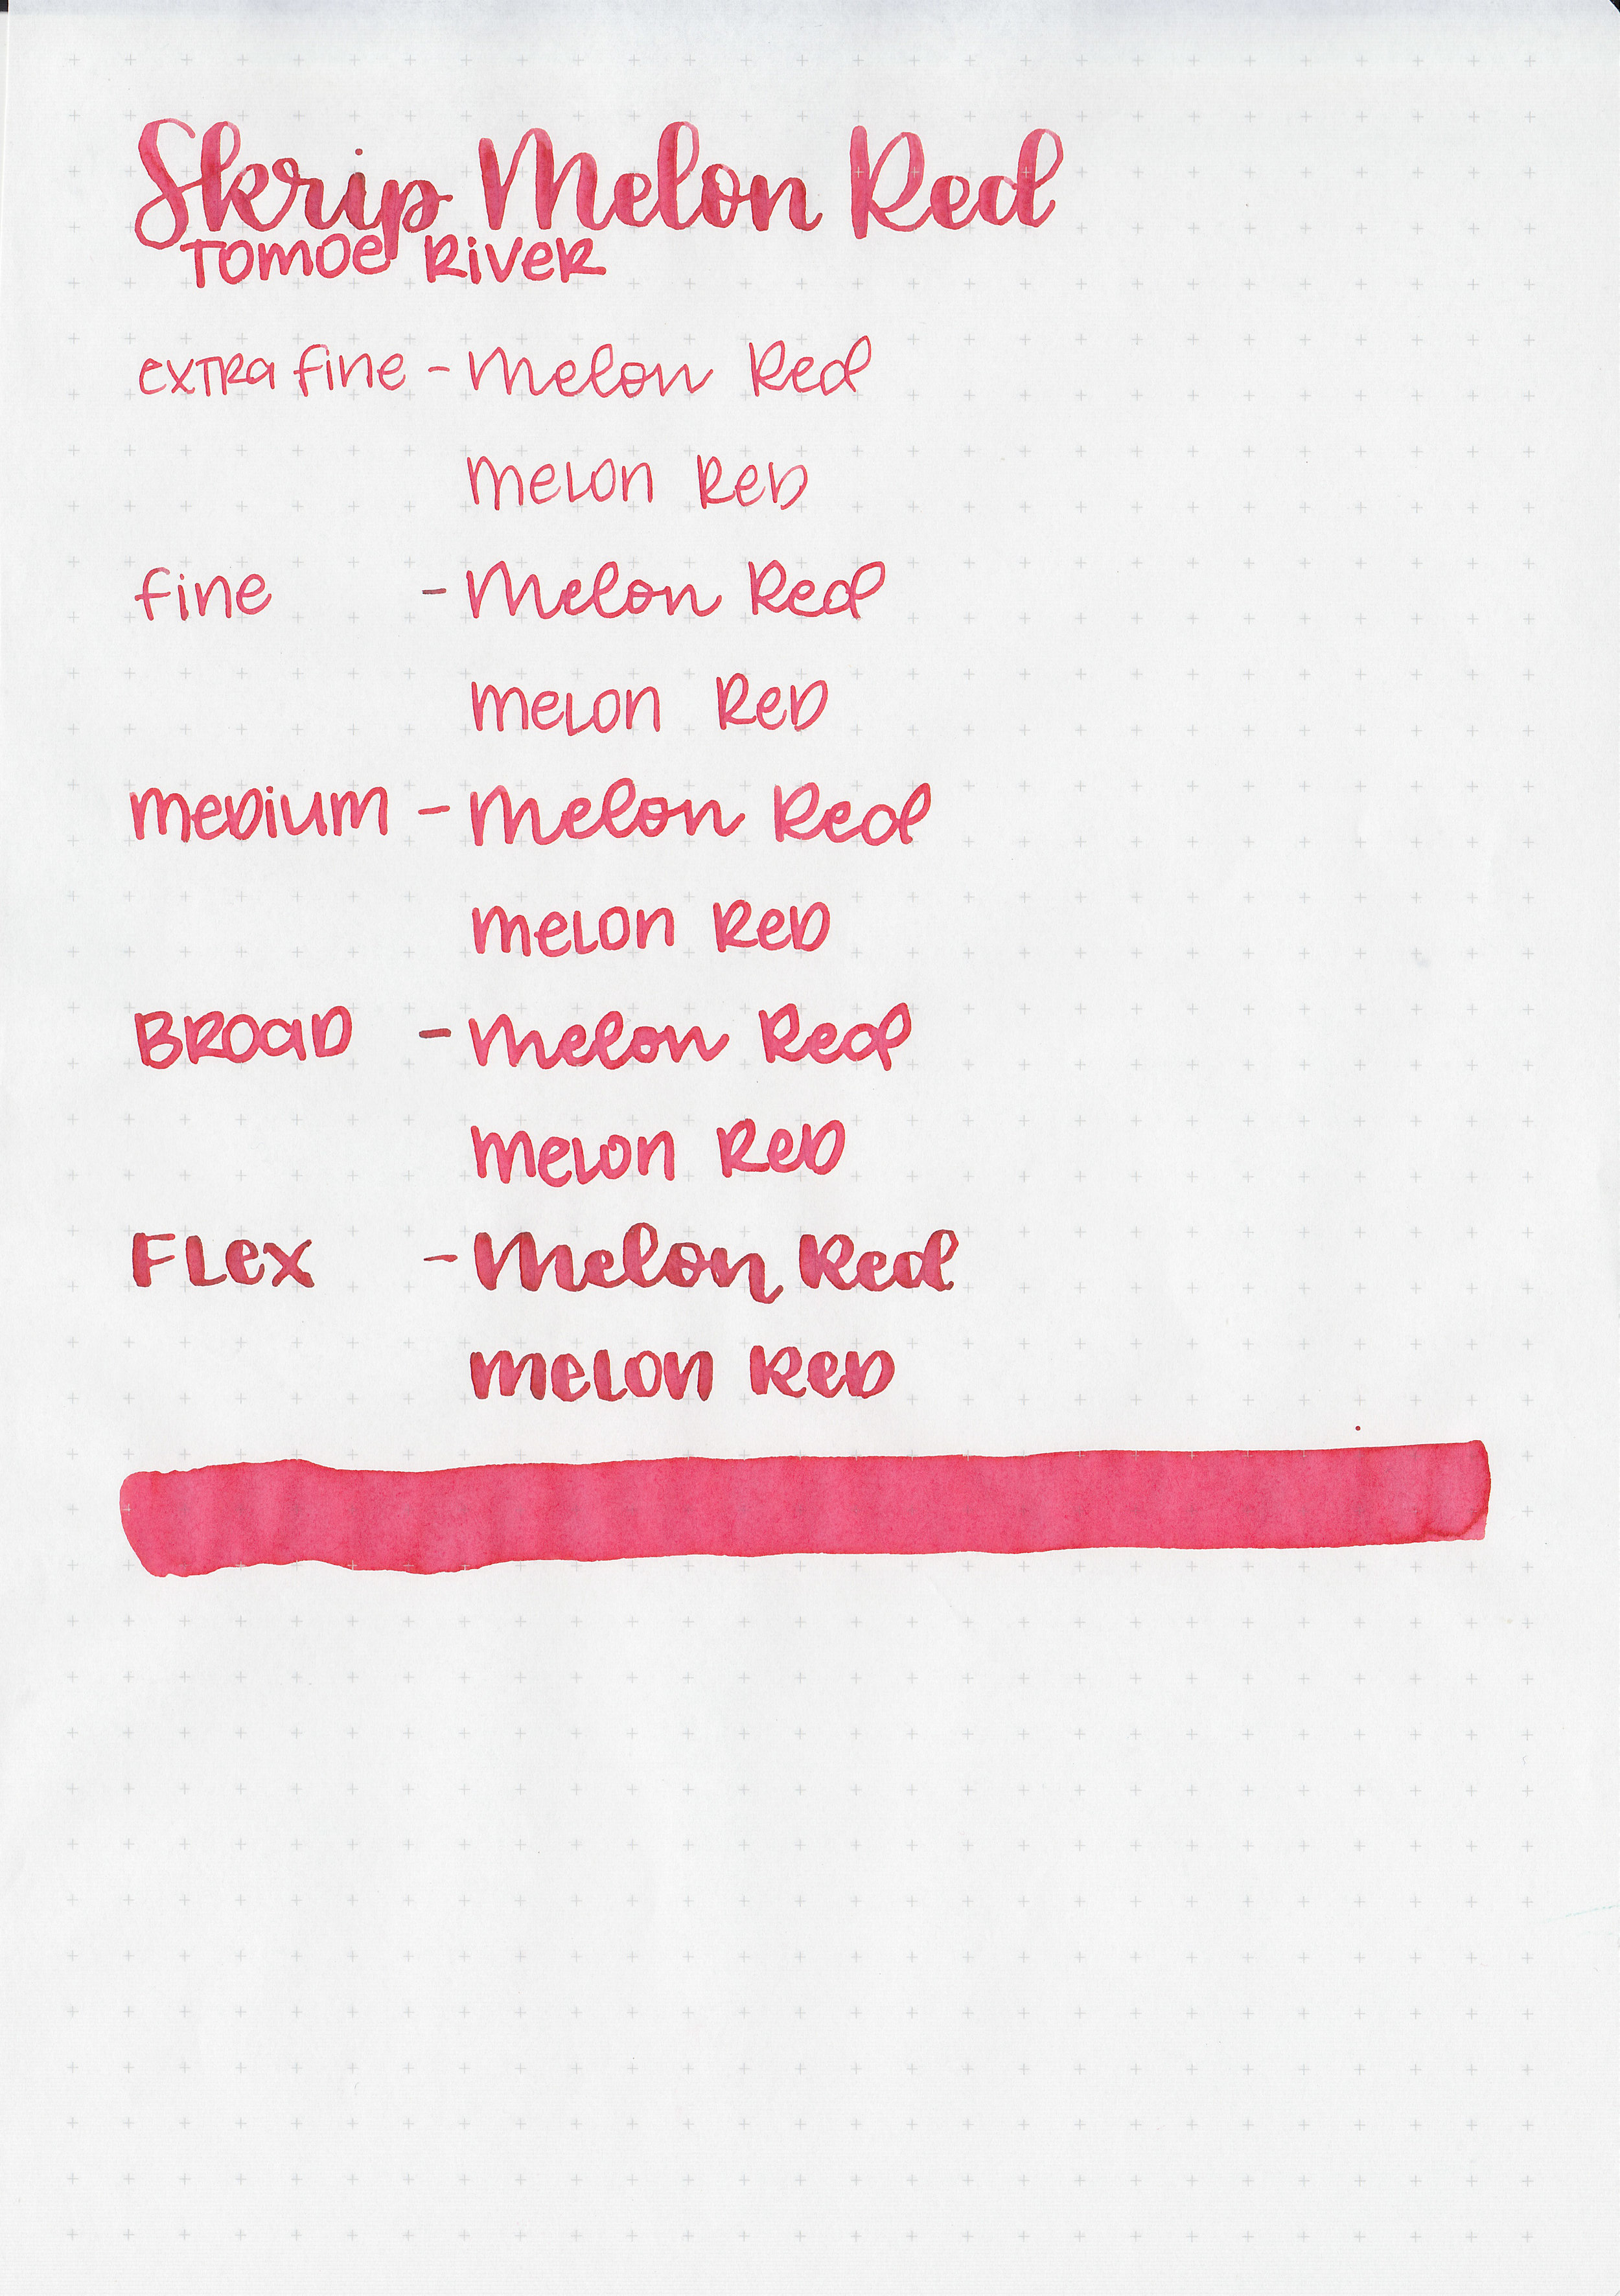 Skrip Melon Red
TOMOE RiVER
exTRa fine - Melon Red
meLon ReD
fine - Melon Red
meLon ReD
meDium - Melon Red
meLon ReD
BROaD - Melon Red
meLon ReD
FLex - Melon Red
meLon ReD